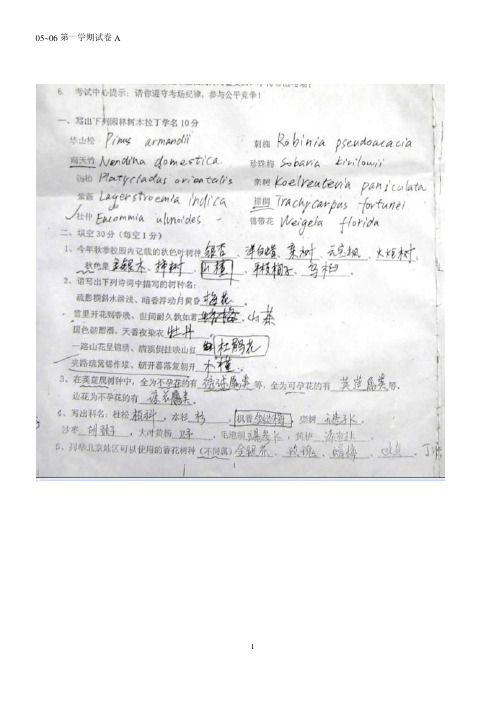 05~06 第一学期试卷 A
6. 考试中心提示：请你遵守考场纪律，参与公平竞争！
一、写出下列园林树木拉丁学名 10 分
华山松 Pinus armandii 刺槐 Robinia pseudoacacia
南天竹 Nandina domestica. 珍珠梅 Sobaria kirilowii
侧柏 Platycladus orientalis 栾树 Koelreuteria paniculata
紫薇 Lagerstroemia indica 棕榈 Trachycarpus fortunei
杜仲 Eucommia ulmoides 锦带花 Weigela florida
二、填空 30 分（每空 1 分）
1、今年秋季校园内记载的秋色叶树种 银杏、洋白蜡、栾树、元宝枫、火炬树，
秋色果 金银木、柿树、山楂、平枝栒子、乌桕.
2、请写出下列诗词中描写的树种名：
疏影横斜水清浅、暗香浮动月黄昏 梅花.
雪里开花到春晚、世间耐久孰如君 山茶
国色朝酣酒、天香夜染衣 牡丹
一路山花呈锦绣、清溪倒挂映山红 杜鹃花
夹路疏篱锦作堆、朝开暮落复朝开 木槿.
3、在荚蒾属树种中，全为不孕花的有 等，全为可孕花的有 荚蒾属类等，
边花为不孕花的有
4、写出科名：杜松 柏科，水杉 杉，枫香 金缕梅 栾树 无患子科
沙枣 胡颓子，大叶黄杨 卫矛，毛泡桐
5、列举北京地区可以使用的香花树种（不同属）金银花、玫瑰、蜡梅、
1